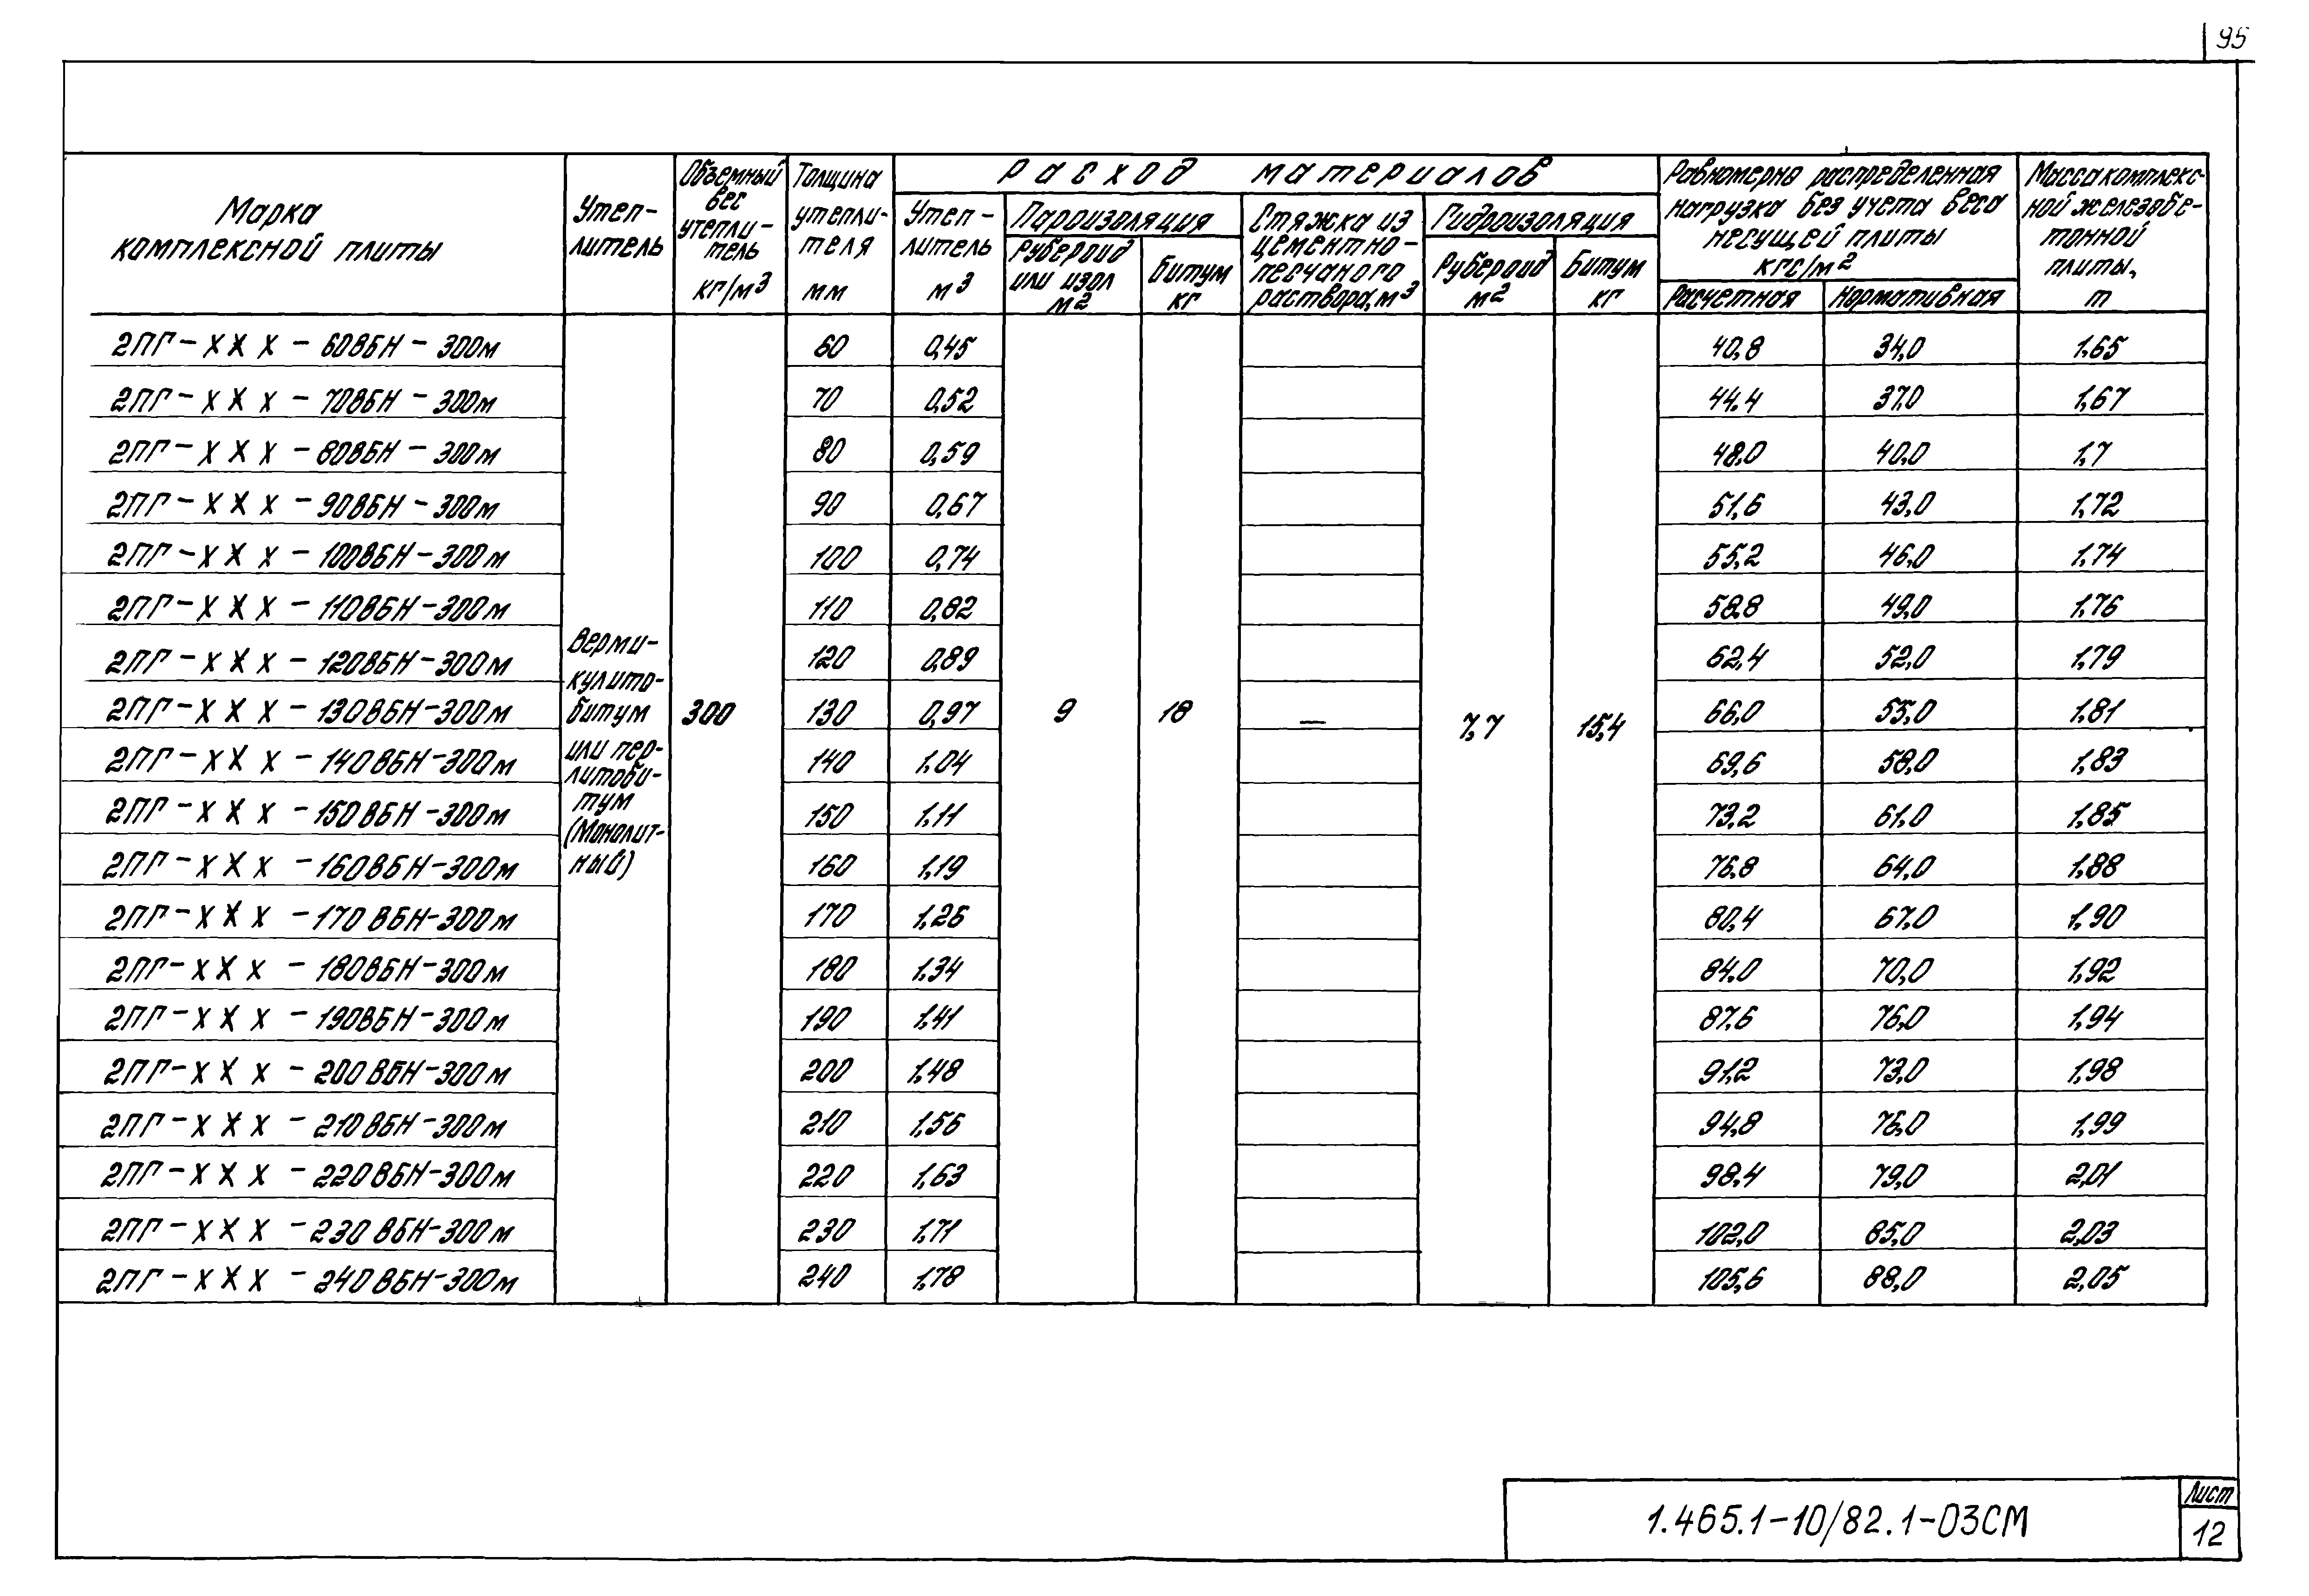 95
Марка комплексной плиты
Утеп-литель
Объемный вес утепли-тель кг/м³
Толщина утепли-теля мм
Расход материалов
Утеп-литель м³
Пароизоляция
Рубероид или изол м²
Битум кг
Стяжка из цементно-песчаного раствора, м³
Гидроизоляция
Рубероид м²
Битум кг
Равномерно распределенная нагрузка без учета веса несущей плиты кгс/м²
Расчетная
Нормативная
Масса комплекс-ной железобе-тонной плиты, т
2ПГ-ХХХ-60ВБН-300м 60 0,45 40,8 34,0 1,65
2ПГ-ХХХ-70ВБН-300м 70 0,52 44.4 37,0 1,67
2ПГ-ХХХ-80ВБН-300м 80 0,59 48,0 40,0 1,7
2ПГ-ХХХ-90ВБН-300м 90 0,67 51,6 43,0 1,72
2ПГ-ХХХ-100ВБН-300м 100 0,74 55,2 46,0 1,74
2ПГ-ХХХ-110ВБН-300м 110 0,82 58,8 49,0 1,76
2ПГ-ХХХ-120ВБН-300м 120 0,89 62,4 52,0 1,79
2ПГ-ХХХ-130ВБН-300м Верми-кулито-битум или пер-литоби-тум (Монолит-ный) 300 130 0,97 9 18 — 7,7 15,4 66,0 55,0 1,81
2ПГ-ХХХ-140ВБН-300м 140 1,04 69,6 58,0 1,83
2ПГ-ХХХ-150ВБН-300м 150 1,11 73,2 61,0 1,85
2ПГ-ХХХ-160ВБН-300м 160 1,19 76,8 64,0 1,88
2ПГ-ХХХ-170ВБН-300м 170 1,26 80,4 67,0 1,90
2ПГ-ХХХ-180ВБН-300м 180 1,34 84,0 70,0 1,92
2ПГ-ХХХ-190ВБН-300м 190 1,41 87,6 76,0 1,94
2ПГ-ХХХ-200ВБН-300м 200 1,48 91,2 73,0 1,98
2ПГ-ХХХ-210ВБН-300м 210 1,56 94,8 76,0 1,99
2ПГ-ХХХ-220ВБН-300м 220 1,63 98,4 79,0 2,01
2ПГ-ХХХ-230ВБН-300м 230 1,71 102,0 85,0 2,03
2ПГ-ХХХ-240ВБН-300м 240 1,78 105,6 88,0 2,05
1.465.1-10/82.1-03СМ
Лист
12